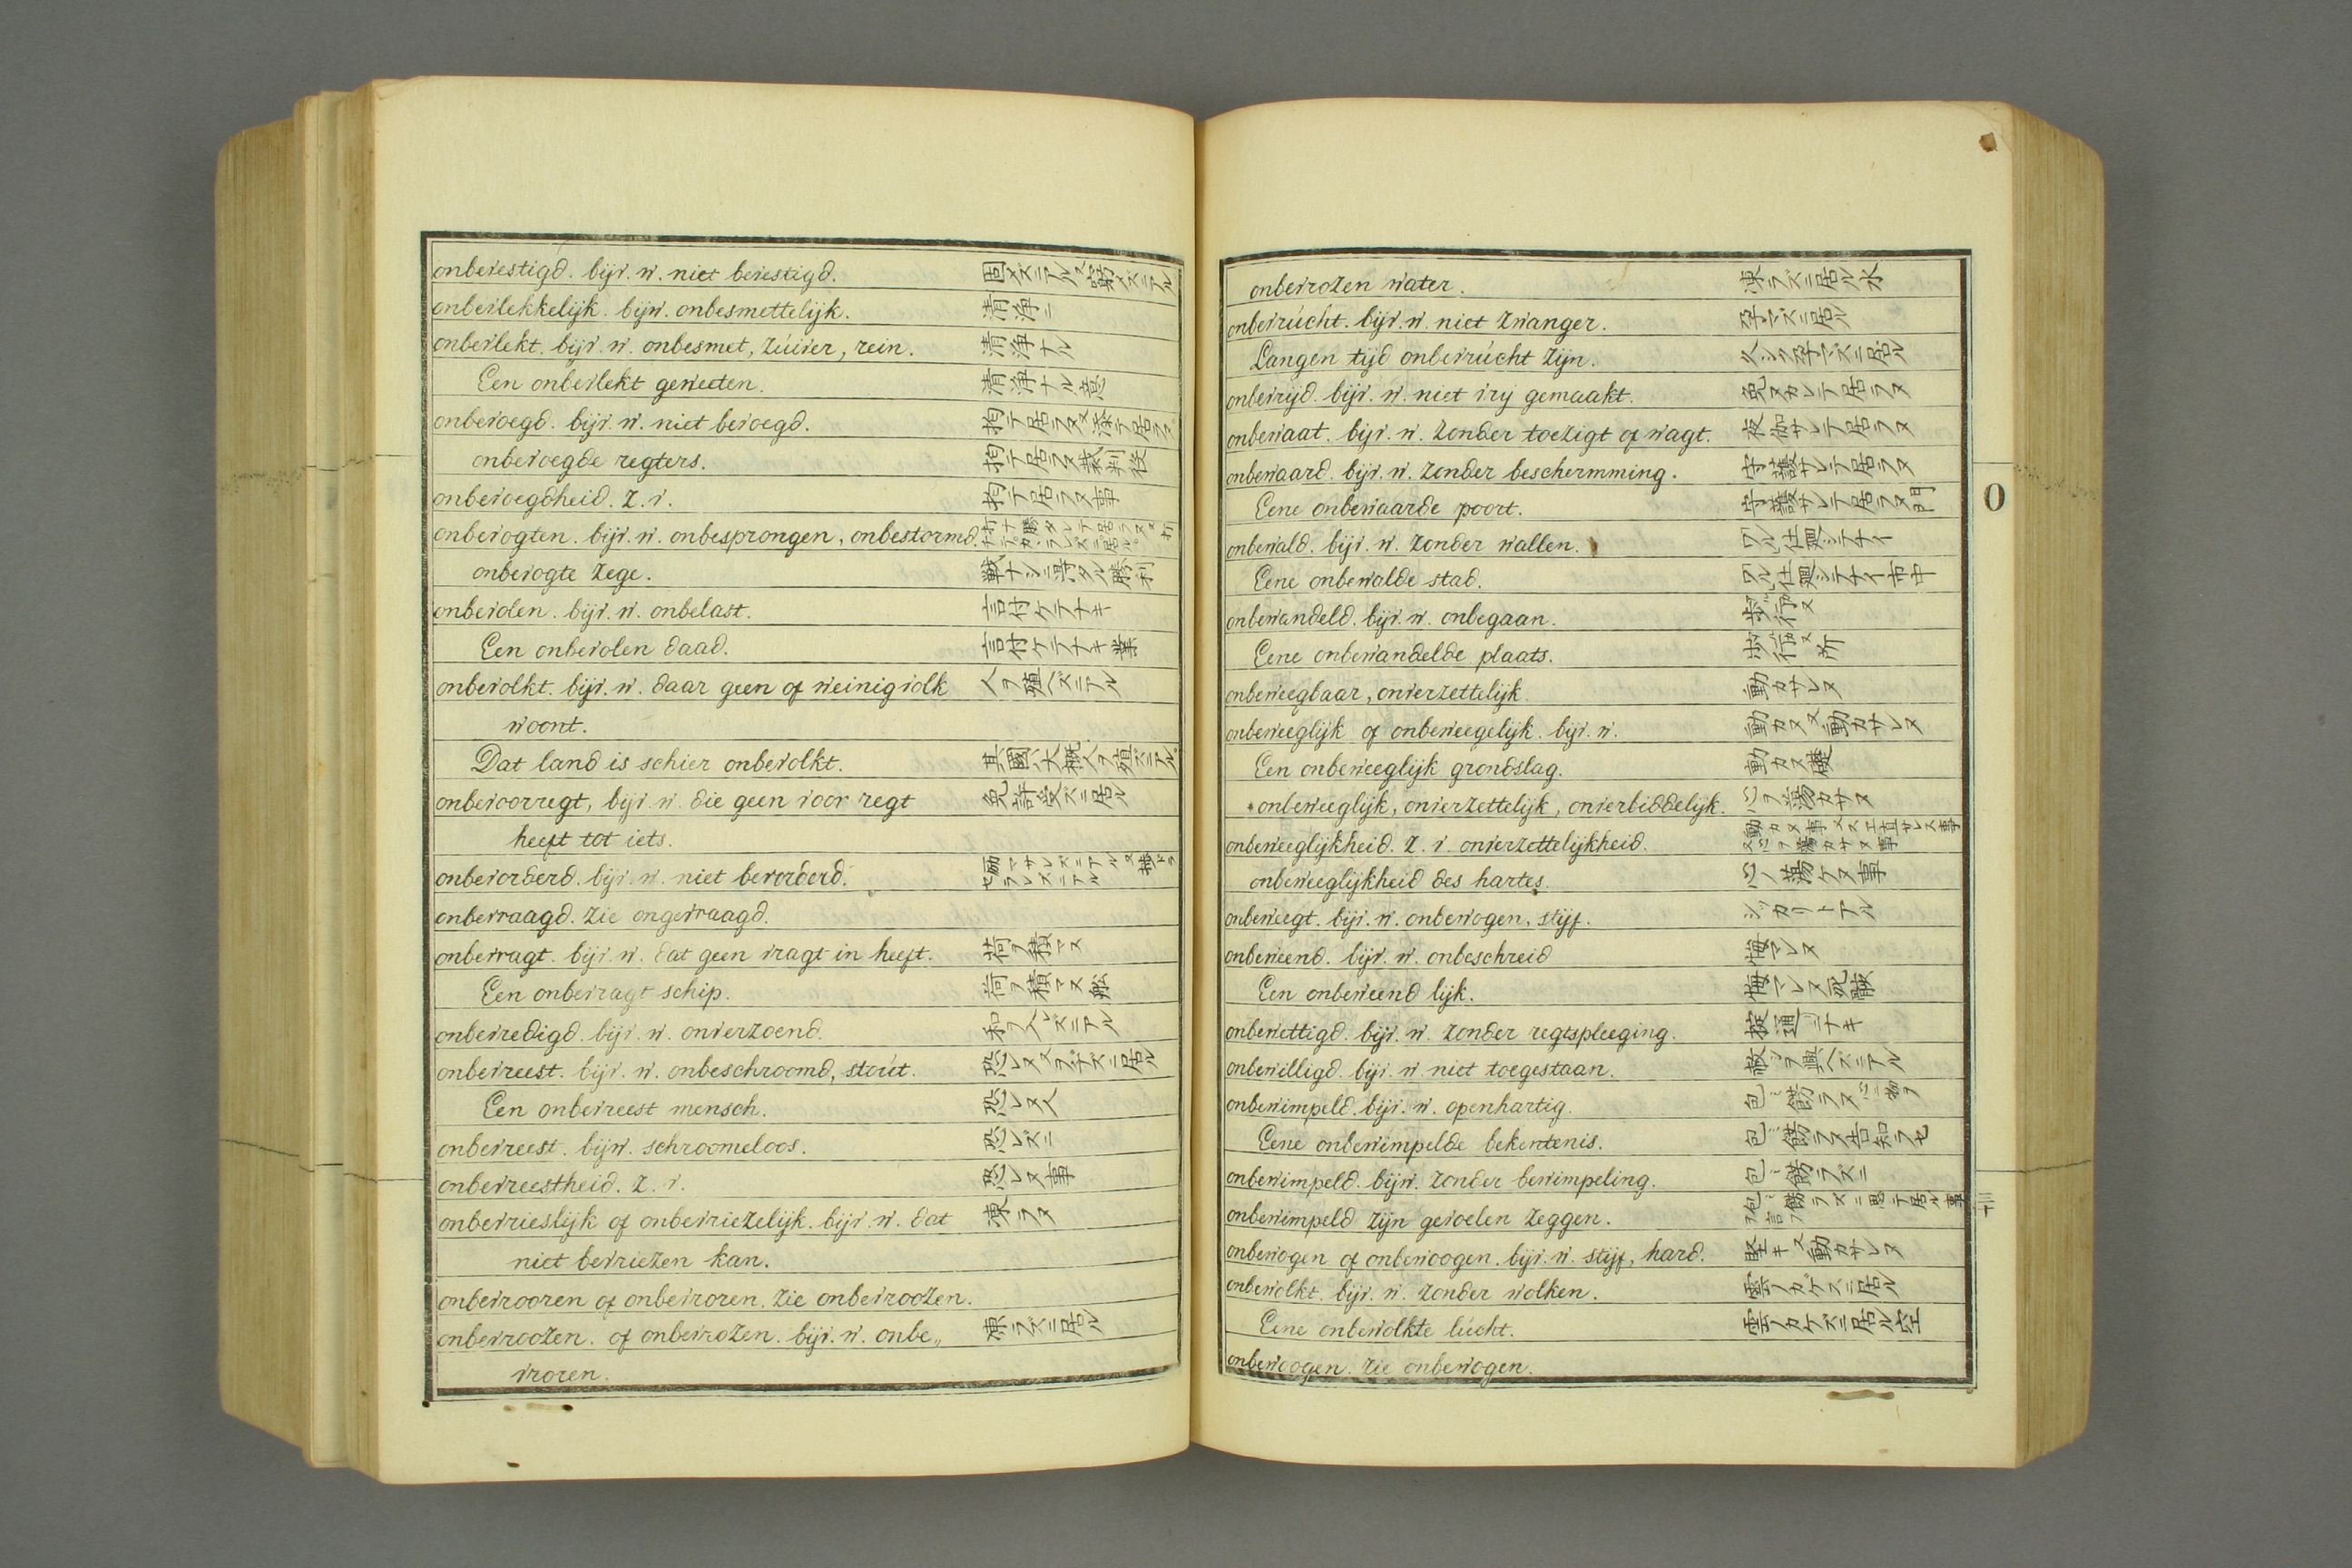 onbevestigd. bijv. w. niet bevestigd.
onbevlekkelijk. bijw. onbesmettelijk. 清浄ニ
onbevlekt. bijv. w. onbesmet, zúiver, rein. 清浄ナル
Een onbevlekt geweeten. 清浄ナル意
onbevoegd. bijv. w. niet bevoegd.
onbevoegde regters. 拘テ居ラヌ裁判役
onbevoegdheid. z. v. 拘テ居ラヌ事
onbevogten. bijv. w. onbesprongen, onbestormd.
onbevogte zege. 戦ナシニ得タル勝利
onbevolen. bijv. w. onbelast. 言付ケテナキ
Een onbevolen daad. 言付ケテナキ業
onbevolkt. bijv. w. daar geen of weinig volk 人ヲ殖ヘズニアル
woont.
Dat land is schier onbevolkt. 其國ハ大概人ヲ殖ズニアル
onbevoorregt, bijv. w. die geen voor regt 免許受ズニ居ル
heeft tot iets.
onbevorderd. bijv. w. niet bevorderd.
onbevraagd. zie ongevraagd.
onbevragt. bijv. w. dat geen vragt in heeft. 荷ヲ積マヌ
Een onbevragt schip. 荷ヲ積マヌ舩
onbevredigd. bijv. w. onverzoend.
onbevreest. bijv. w. onbeschroomd, stoút.
Een onbevreest mensch. 恐レヌ人
onbevreest. bijw. schroomeloos. 恐レズニ
onbevreestheid. z. v. 恐レヌ事
onbevrieslijk of onbevriezelijk. bijv. w. dat 凍ラヌ
niet bevriezen kan.
onbevrooren of onbevroren. zie onbevroozen.
onbevroozen. of onbevrozen. bijv. w. onbe„ 凍ラズニ居ル
vroren.
onbevrozen water. 凍ラズニ居ル水
onbevrúcht. bijv. w. niet zwanger. 孕マズニ居ル
Langen tijd onbevrúcht zijn. 久シク孕マズニ居ル
onbevrijd. bijv. w. niet vrij gemaakt. 免ヌカレテ居ラヌ
onbewaat. bijv. w. zonder toezigt of wagt.
onbewaard. bijv. w. zonder beschermming. 守護サレテ居ラヌ
Eene onbewaarde poort. 守護サレテ居ラヌ門
O
onbewald. bijv. w. zonder wallen.
Eene onbewalde stad.
onbewandeld. bijv. w. onbegaan. 歩行カヌ
Eene onbewandelde plaats. 歩行カヌ所
onbeweegbaar, onverzettelijk. 動カサレヌ
onbeweeglijk of onbeweegelijk. bijv. w. 動カヌ又動カサレヌ
Een onbeweeglijk grondslag. 動カヌ礎
*onbeweeglijk, onverzettelijk, onverbiddelijk. 心ヲ蕩カサヌ
onbeweeglijkheid. z. v. onverzettelijkheid.
onbeweeglijkheid des hartes. 心ノ蕩ケヌ事
onbeweegt. bijv. w. onbewogen, stijf. シッカリトアル
onbeweend. bijv. w. onbeschreid 悔マレヌ
Een onbeweend lijk. 悔マレヌ死骸
onbewettigd. bijv. w. zonder regtspleeging.
onbewilligd. bijv. w. niet toegestaan.
onbewimpeld. bijv. w. openhartig.
Eene onbewimpelde bekentenis. 包ミ餝ラヌ告知ラセ
onbewimpeld. bijw. zonder bewimpeling. 包ミ餝ラズニ
onbewimpeld zijn gevoelen zeggen. 包ミ餝ラズニ思テ居ル事ヲ言フ
onbewogen of onbewoogen. bijv. w. stijf, hard. 堅キ又動カサレヌ
onbewolkt. bijv. w. zonder wolken. 雲ノカケズニ居ル
Eene onbewolkte lúcht. 雲ノカケズニ居ル空
onbewoogen. zie onbewogen.